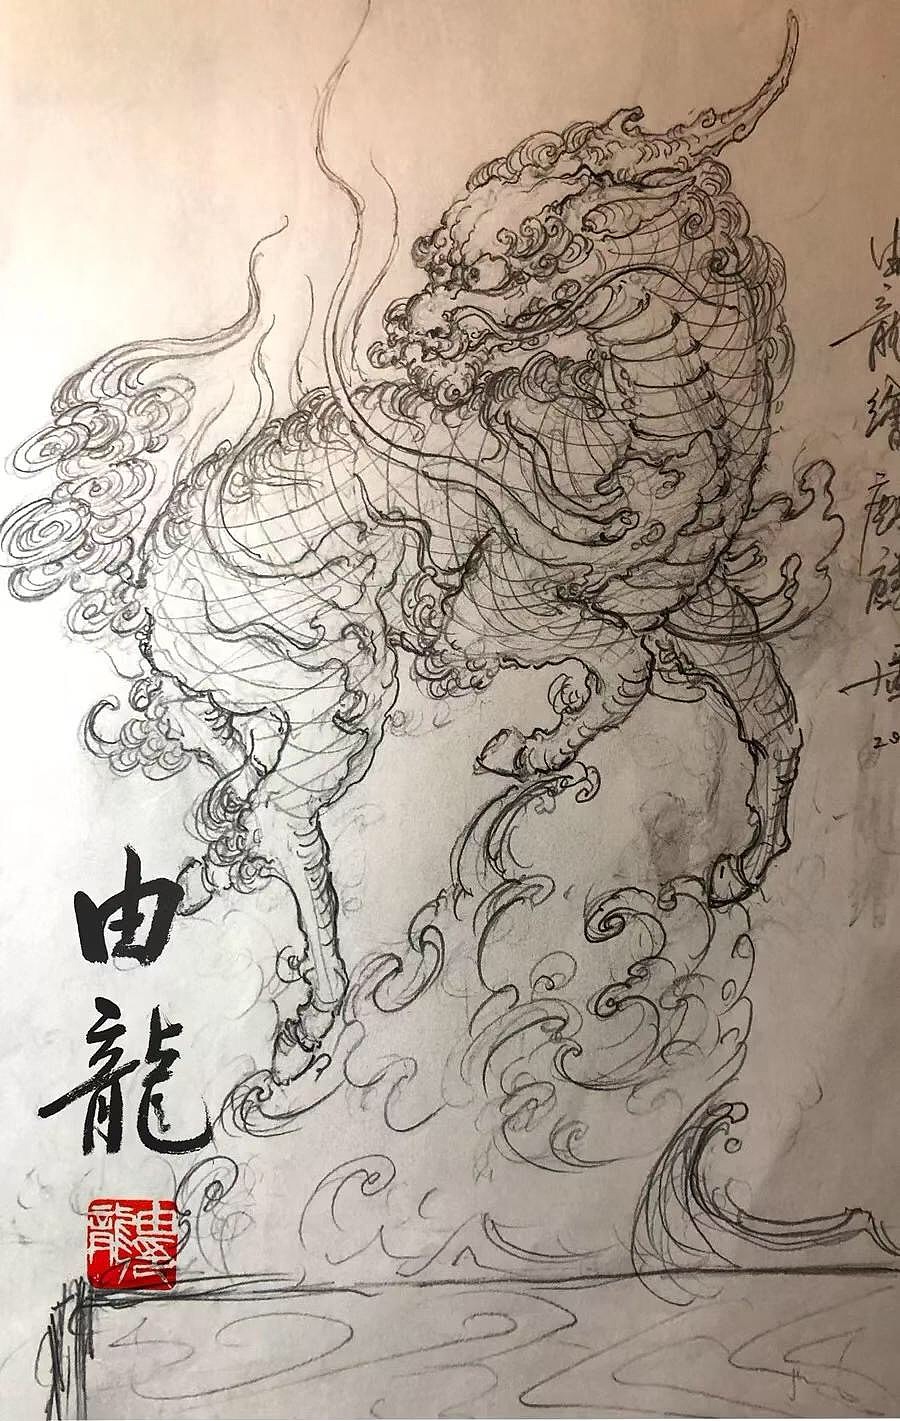 由龍繪麒麟
20
由龍